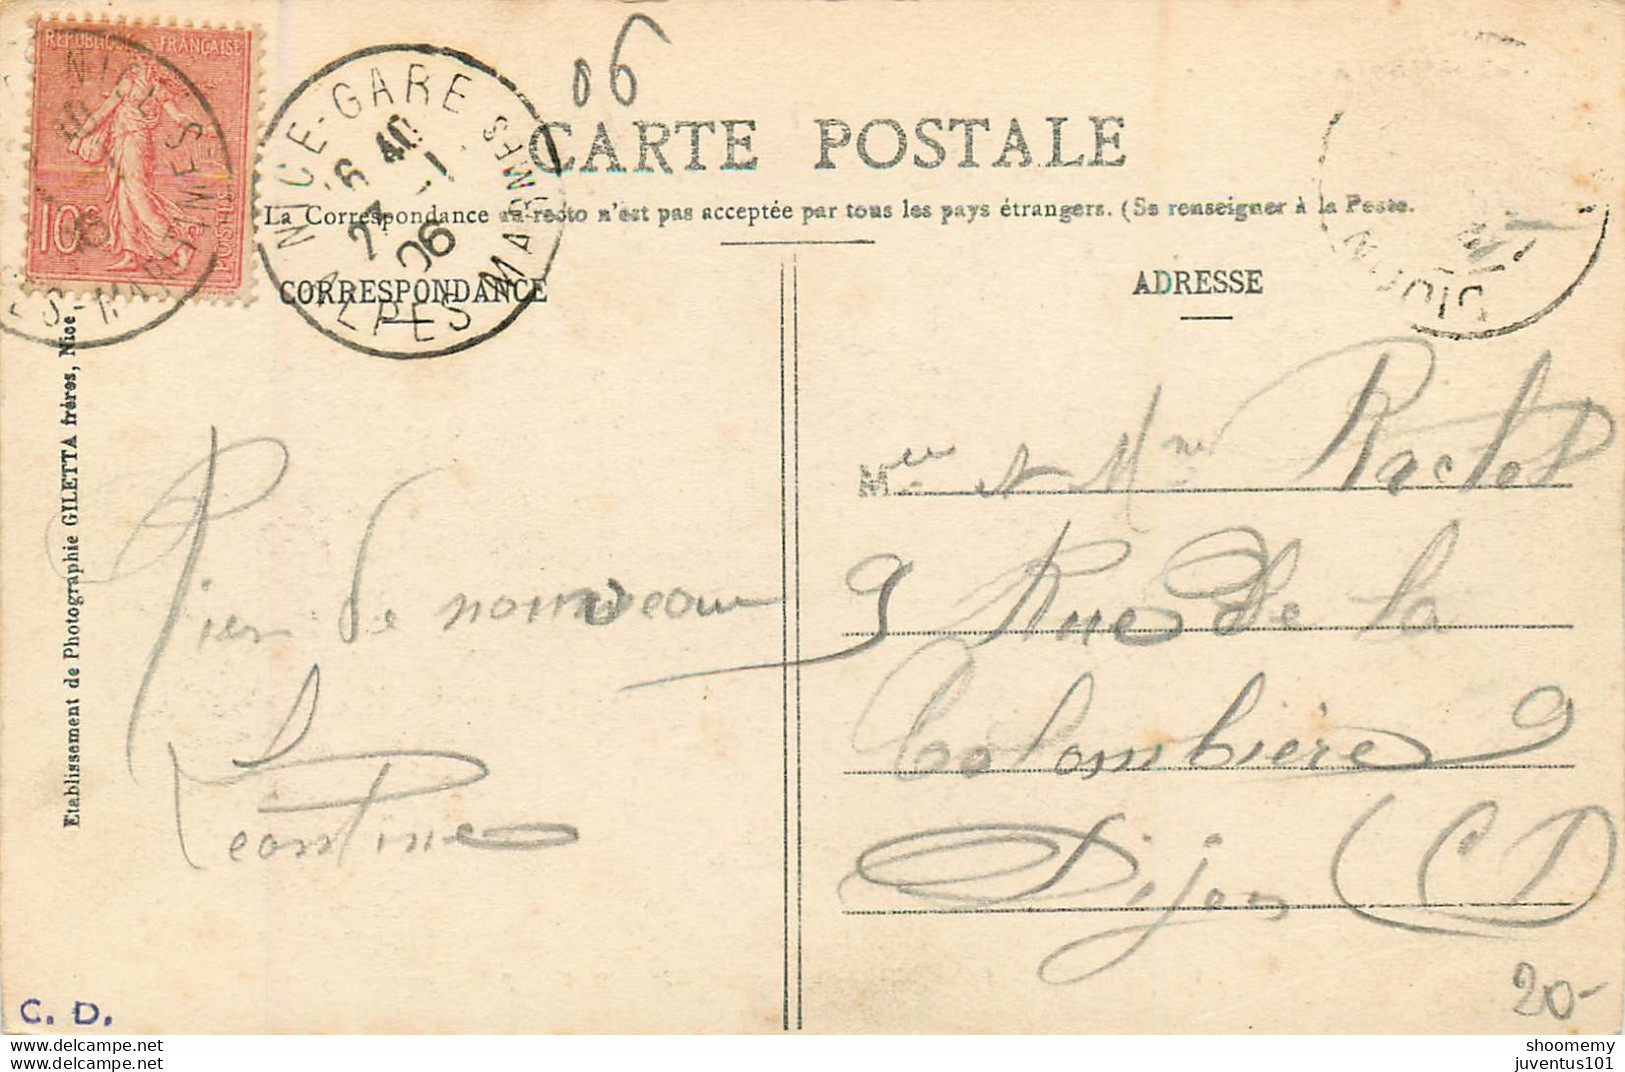 REPUBLIQUE FRANÇAISE
10c
POSTES
NICE-GARE
ALPES MARMES
6 40
2 -1
06
06
CARTE POSTALE
La Correspondance au recto n'est pas acceptée par tous les pays étrangers. (Se renseigner à la Poste.
CORRESPONDANCE
ADRESSE
DIJON
Etablissement de Photographie GILETTA frères, Nice
Rien de nouveau
Leontine
Melle et Mme Ractot
9 Rue de la
Colombière 9
Dijon (CD)
20-
C. D.
shoomemy
juventus101